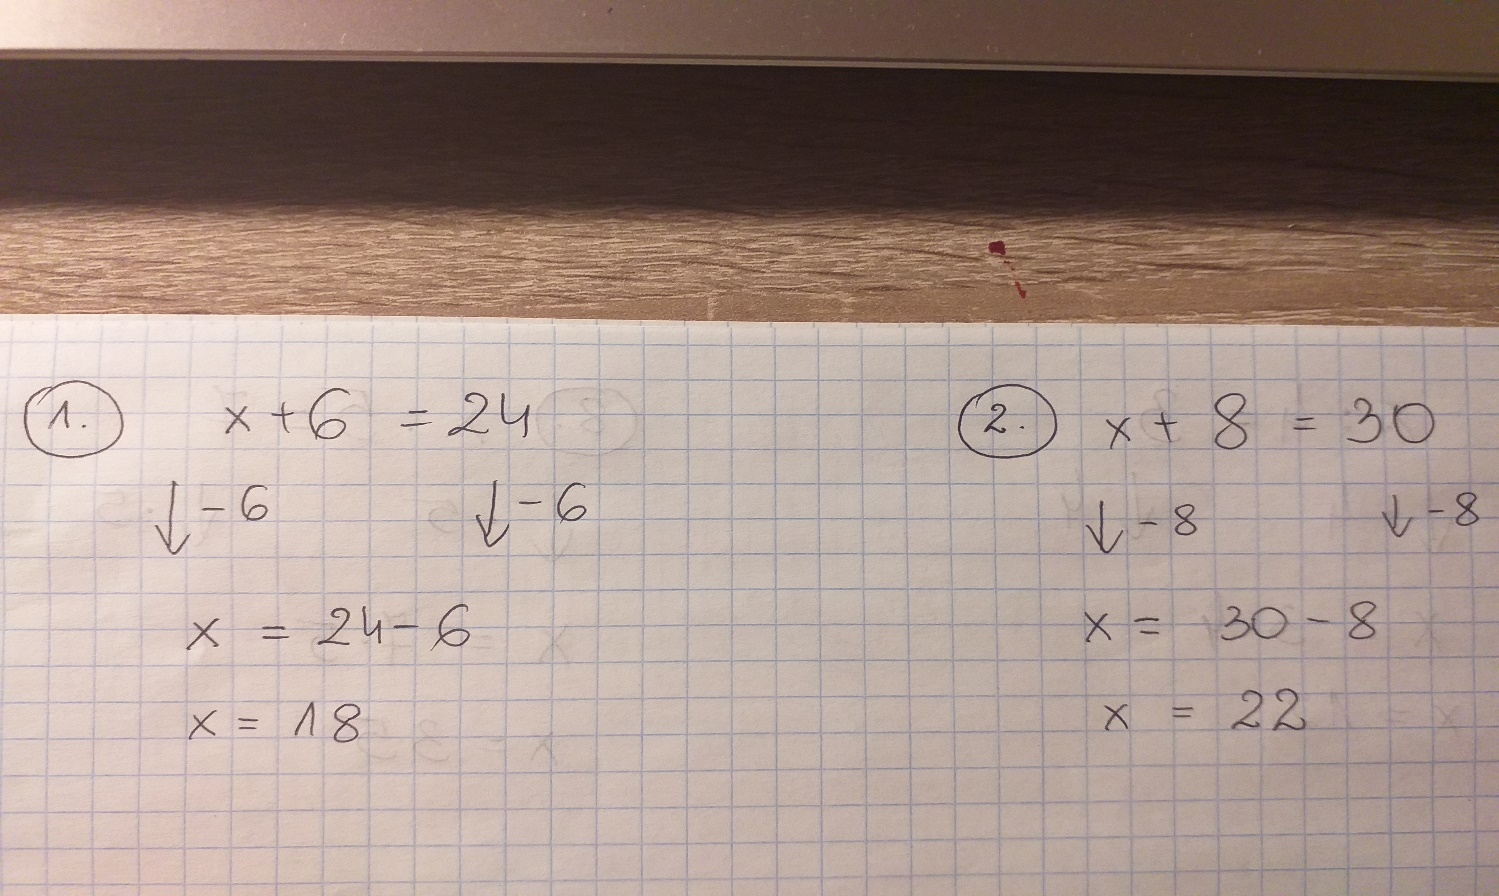 1. x + 6 = 24
↓ - 6 ↓ - 6
x = 24 - 6
x = 18
2. x + 8 = 30
↓ - 8 ↓ - 8
x = 30 - 8
x = 22